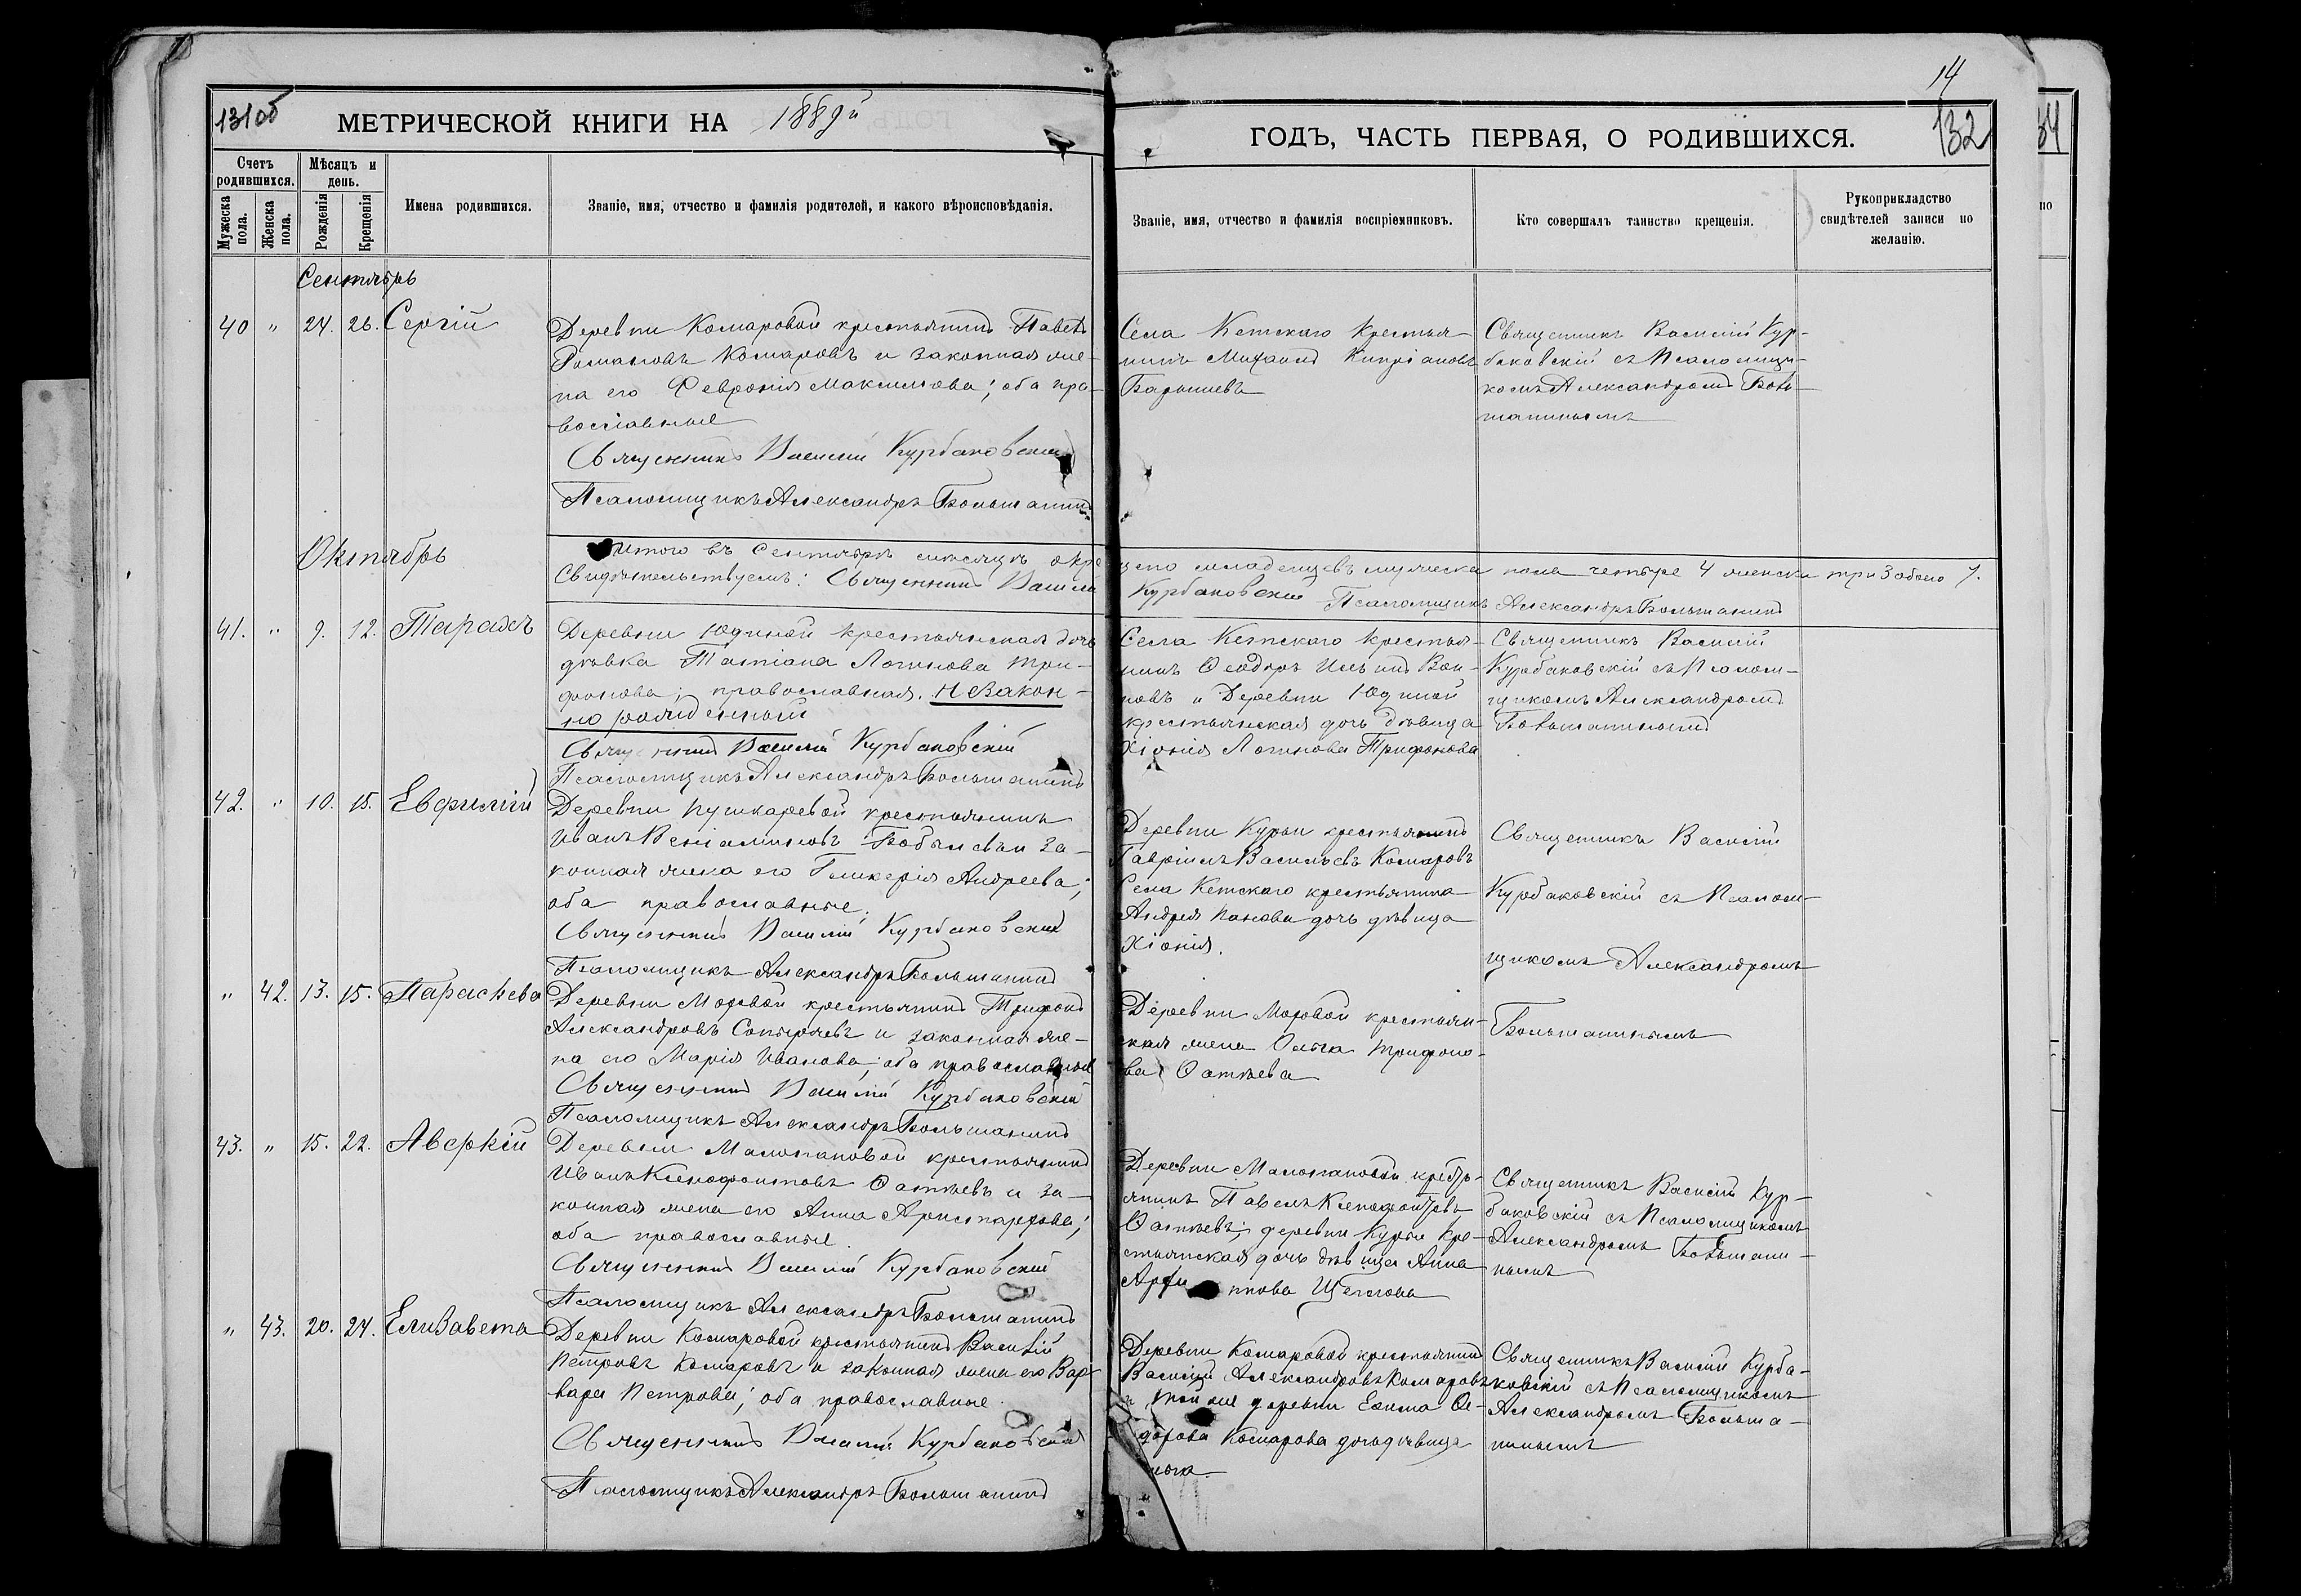 131об
МЕТРИЧЕСКОЙ КНИГИ НА 1889й
14
ГОДЪ, ЧАСТЬ ПЕРВАЯ, О РОДИВШИХСЯ.
132
34
Счетъ родившихся.
Мѣсяцъ и день.
Мужеска пола.
Женска пола.
Рожденія
Крещенія
Имена родившихся.
Званіе, имя, отчество и фамилія родителей, и какого вѣроисповѣданія.
Званіе, имя, отчество и фамилія воспріемниковъ.
Кто совершалъ таинство крещенія.
Рукоприкладство
свидѣтелей записи по
желанію.
по
Сентябрь
40 " 24. 26. Сергій
Деревни Комаровой крестьянинъ Павелъ
Романовъ Комаровъ и законная же-
на его Февронія Максимова; оба пра-
вославные
Священникъ Василій Курбаковскій
Псаломщикъ Александръ Большанинъ
Села Кетскаго крестья-
нинъ Михаилъ Кипріановъ
Барышевъ
Священникъ Василій Кур-
баковскій съ Псаломщи-
комъ Александромъ Боль-
шанинымъ
Октябрь
Итого въ Сентябрѣ мѣсяцѣ окрещено младенцевъ мужеска пола четыре 4 женска три 3 обоего 7.
Свидѣтельствуемъ: Священникъ Василій Курбаковскій Псаломщикъ Александръ Большанинъ
41. " 9. 12. Тарахъ
Деревни Юдиной крестьянская дочь
дѣвка Татіана Логинова Три-
фонова; православная. Незакон-
но рожденный
Священникъ Василій Курбаковскій
Псаломщикъ Александръ Большанинъ
Села Кетскаго крестья-
нинъ Ѳеодоръ Ильинъ
" Деревни Юдиной
крестьянская дочь дѣвица
Хіонія Логинова Трифонова
Священникъ Василій
Курбаковскій съ Псалом-
щикомъ Александромъ
Большанинымъ
42. " 10. 15. Евфимій
Деревни Пушкаревой крестьянинъ
Иванъ Веніаминовъ и за-
конная жена его Гликерія Андреева;
оба православные.
Священникъ Василій Курбаковскій
Псаломщикъ Александръ Большанинъ
Деревни Курьи крестьянинъ
Гавріилъ Васильевъ Комаровъ
Села Кетскаго крестьянина
Андрея Панова дочь дѣвица
Хіонія.
Священникъ Василій
Курбаковскій съ Псалом-
щикомъ Александромъ
Большанинымъ
" 42. 13. 15. Параскева
Деревни Моховой крестьянинъ Трифонъ
Александровъ и законная же-
на его Марія Иванова; оба православные
Священникъ Василій Курбаковскій
Псаломщикъ Александръ Большанинъ
Деревни Моховой крестьян-
ская жена Ольга Трифоно-
ва Фатѣева
43. " 15. 22. Аверкій
Деревни Малопановой крестьянинъ
Иванъ Ксенофонтовъ Фатѣевъ и за-
конная жена его Анна Аристархова;
оба православные.
Священникъ Василій Курбаковскій
Псаломщикъ Александръ Большанинъ
Деревни Малопановой кресть-
янинъ Павелъ Ксенофонтовъ
Фатѣевъ; деревни Курьи кре-
стьянская дочь дѣвица Анна
Щеглова
Священникъ Василій Кур-
баковскій съ Псаломщикомъ
Александромъ Большани-
нымъ
" 43. 20. 24. Елизавета
Деревни Комаровой крестьянинъ Василій
Петровъ Комаровъ и законная жена его Вар-
вара Петрова; оба православные.
Священникъ Василій Курбаковскій
Псаломщикъ Александръ Большанинъ
Деревни Комаровой крестьянинъ
Василій Александровъ Комаровъ
и той же деревни Ѳе-
дорова Комарова дочь дѣвица
Священникъ Василій Курба-
ковскій съ Псаломщикомъ
Александромъ Больша-
нинымъ